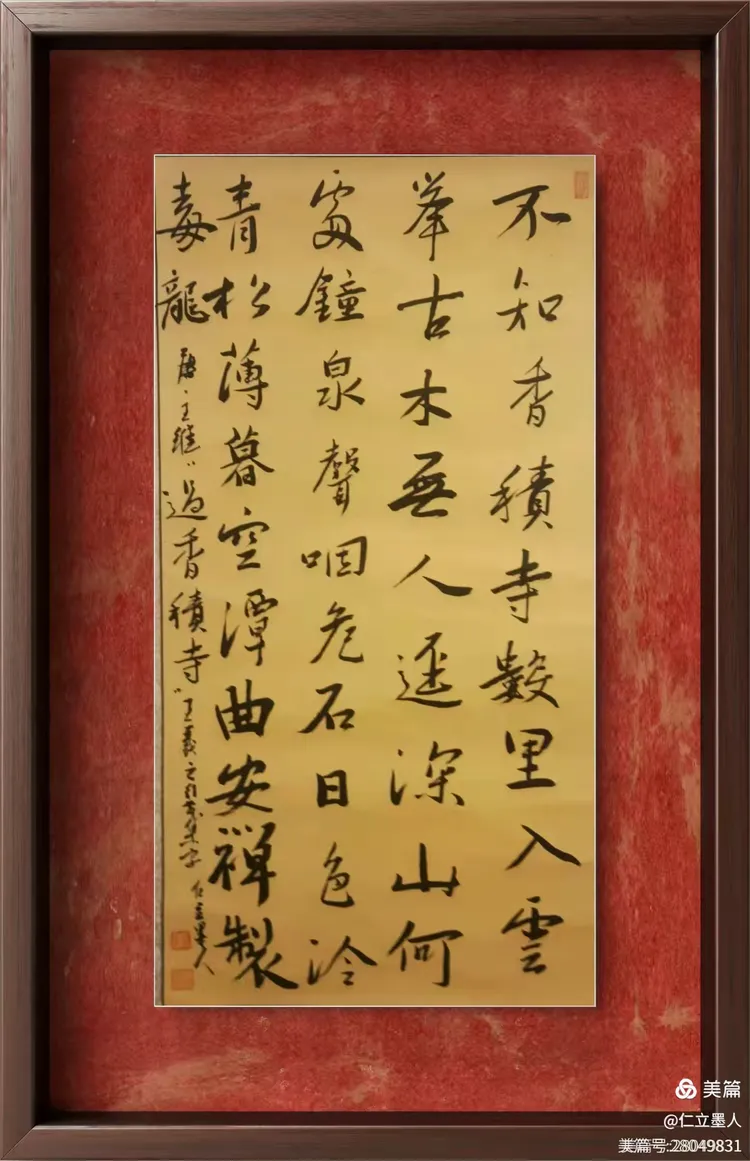 不知香積寺數里入雲
峯古木無人逕深山何
處鐘泉聲咽危石日色冷
青松薄暮空潭曲安禪製
毒龍 唐·王維"過香積寺"王羲之行書集字 仁立墨人
美篇
@仁立墨人
美篇号:28049831